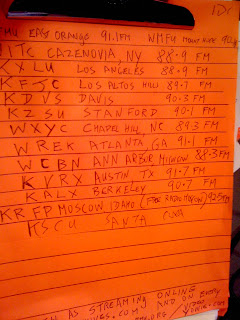 EAST ORANGE 91.1FM WMFU MOUNT HOPE
CAZENOVIA, NY 88.9 FM
KXLU LOS ANGELES 88.9 FM
KFJC LOS ALTOS HILLS 89.7 FM
KDVS DAVIS 90.3 FM
KZSU STANFORD 90.1 FM
WXYC CHAPEL HILL, NC 89.3 FM
WREK ATLANTA, GA 91.1 FM
WCBN ANN ARBOR 88.3 FM
KVRX AUSTIN TX 91.7 FM
KALX BERKELEY 90.7 FM
KRFP MOSCOW IDAHO (FREE RADIO MOSCOW) 92.5 FM
KSCU SANTA
AS STREAMING ONLINE
.COM AND ON